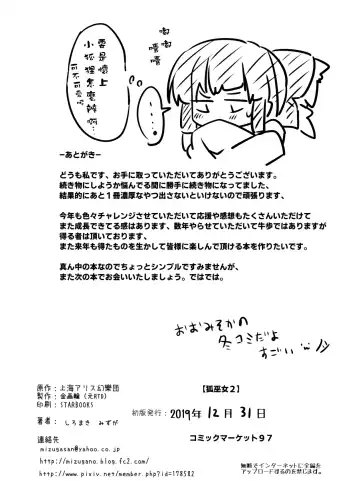 要是懷上
小狐狸怎麼辦啊…
可不可愛呢
嘟嘟
囔囔
…。
-あとがき-
どうも私です、お手に取っていただいてありがとうございます。
続き物にしようか悩んでる間に勝手に続き物になってました、
結果的にあと１冊濃厚なやつ出さないといけないので頑張ります、
今年も色々チャレンジさせていただいて応援や感想もたくさんいただけて
また成長できてる感はあります、数年やらせていただいて牛歩ではありますが
得る者は頂いております、
また来年も得たものを生かして皆様に楽しんで頂ける本を作りたいです。
真ん中の本なのでちょっとシンプルですみませんが、
また次の本でお会いいたしましょう。ではでは。
おおみそかの
冬コミだよ
すごい
原作：上海アリス幻樂団
製作：金画輪（元RTD）
印刷：STARBOOKS
著者：しろまき みずが
連絡先
mizugasan@yahoo.co.jp
http://mizugano.blog.fc2.com/
http://www.pixiv.net/member.php?id=178582
【狐巫女２】
初版発行：2019年12月31日
コミックマーケット９７
無断でインターネットに全編を
アップロードするのを禁じます。